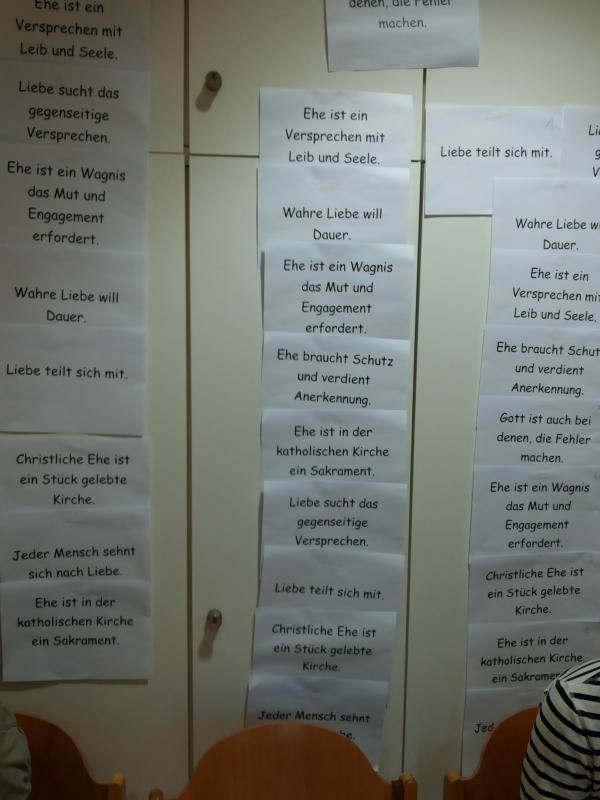 Ehe ist ein
Versprechen mit
Leib und Seele.
Liebe sucht das
gegenseitige
Versprechen.
Ehe ist ein Wagnis
das Mut und
Engagement
erfordert.
Wahre Liebe will
Dauer.
Liebe teilt sich mit.
Christliche Ehe ist
ein Stück gelebte
Kirche.
Jeder Mensch sehnt
sich nach Liebe.
Ehe ist in der
katholischen Kirche
ein Sakrament.
denen, die Fehler
machen.
Ehe ist ein
Versprechen mit
Leib und Seele.
Wahre Liebe will
Dauer.
Ehe ist ein Wagnis
das Mut und
Engagement
erfordert.
Ehe braucht Schutz
und verdient
Anerkennung.
Ehe ist in der
katholischen Kirche
ein Sakrament.
Liebe sucht das
gegenseitige
Versprechen.
Liebe teilt sich mit.
Christliche Ehe ist
ein Stück gelebte
Kirche.
Jeder Mensch sehnt
Liebe teilt sich mit.
Wahre Liebe
Dauer.
Ehe ist ein
Versprechen mit
Leib und Seele.
Ehe braucht Schutz
und verdient
Anerkennung.
Gott ist auch bei
denen, die Fehler
machen.
Ehe ist ein Wagnis
das Mut und
Engagement
erfordert.
Christliche Ehe ist
ein Stück gelebte
Kirche.
Ehe ist in der
katholischen Kirche
ein